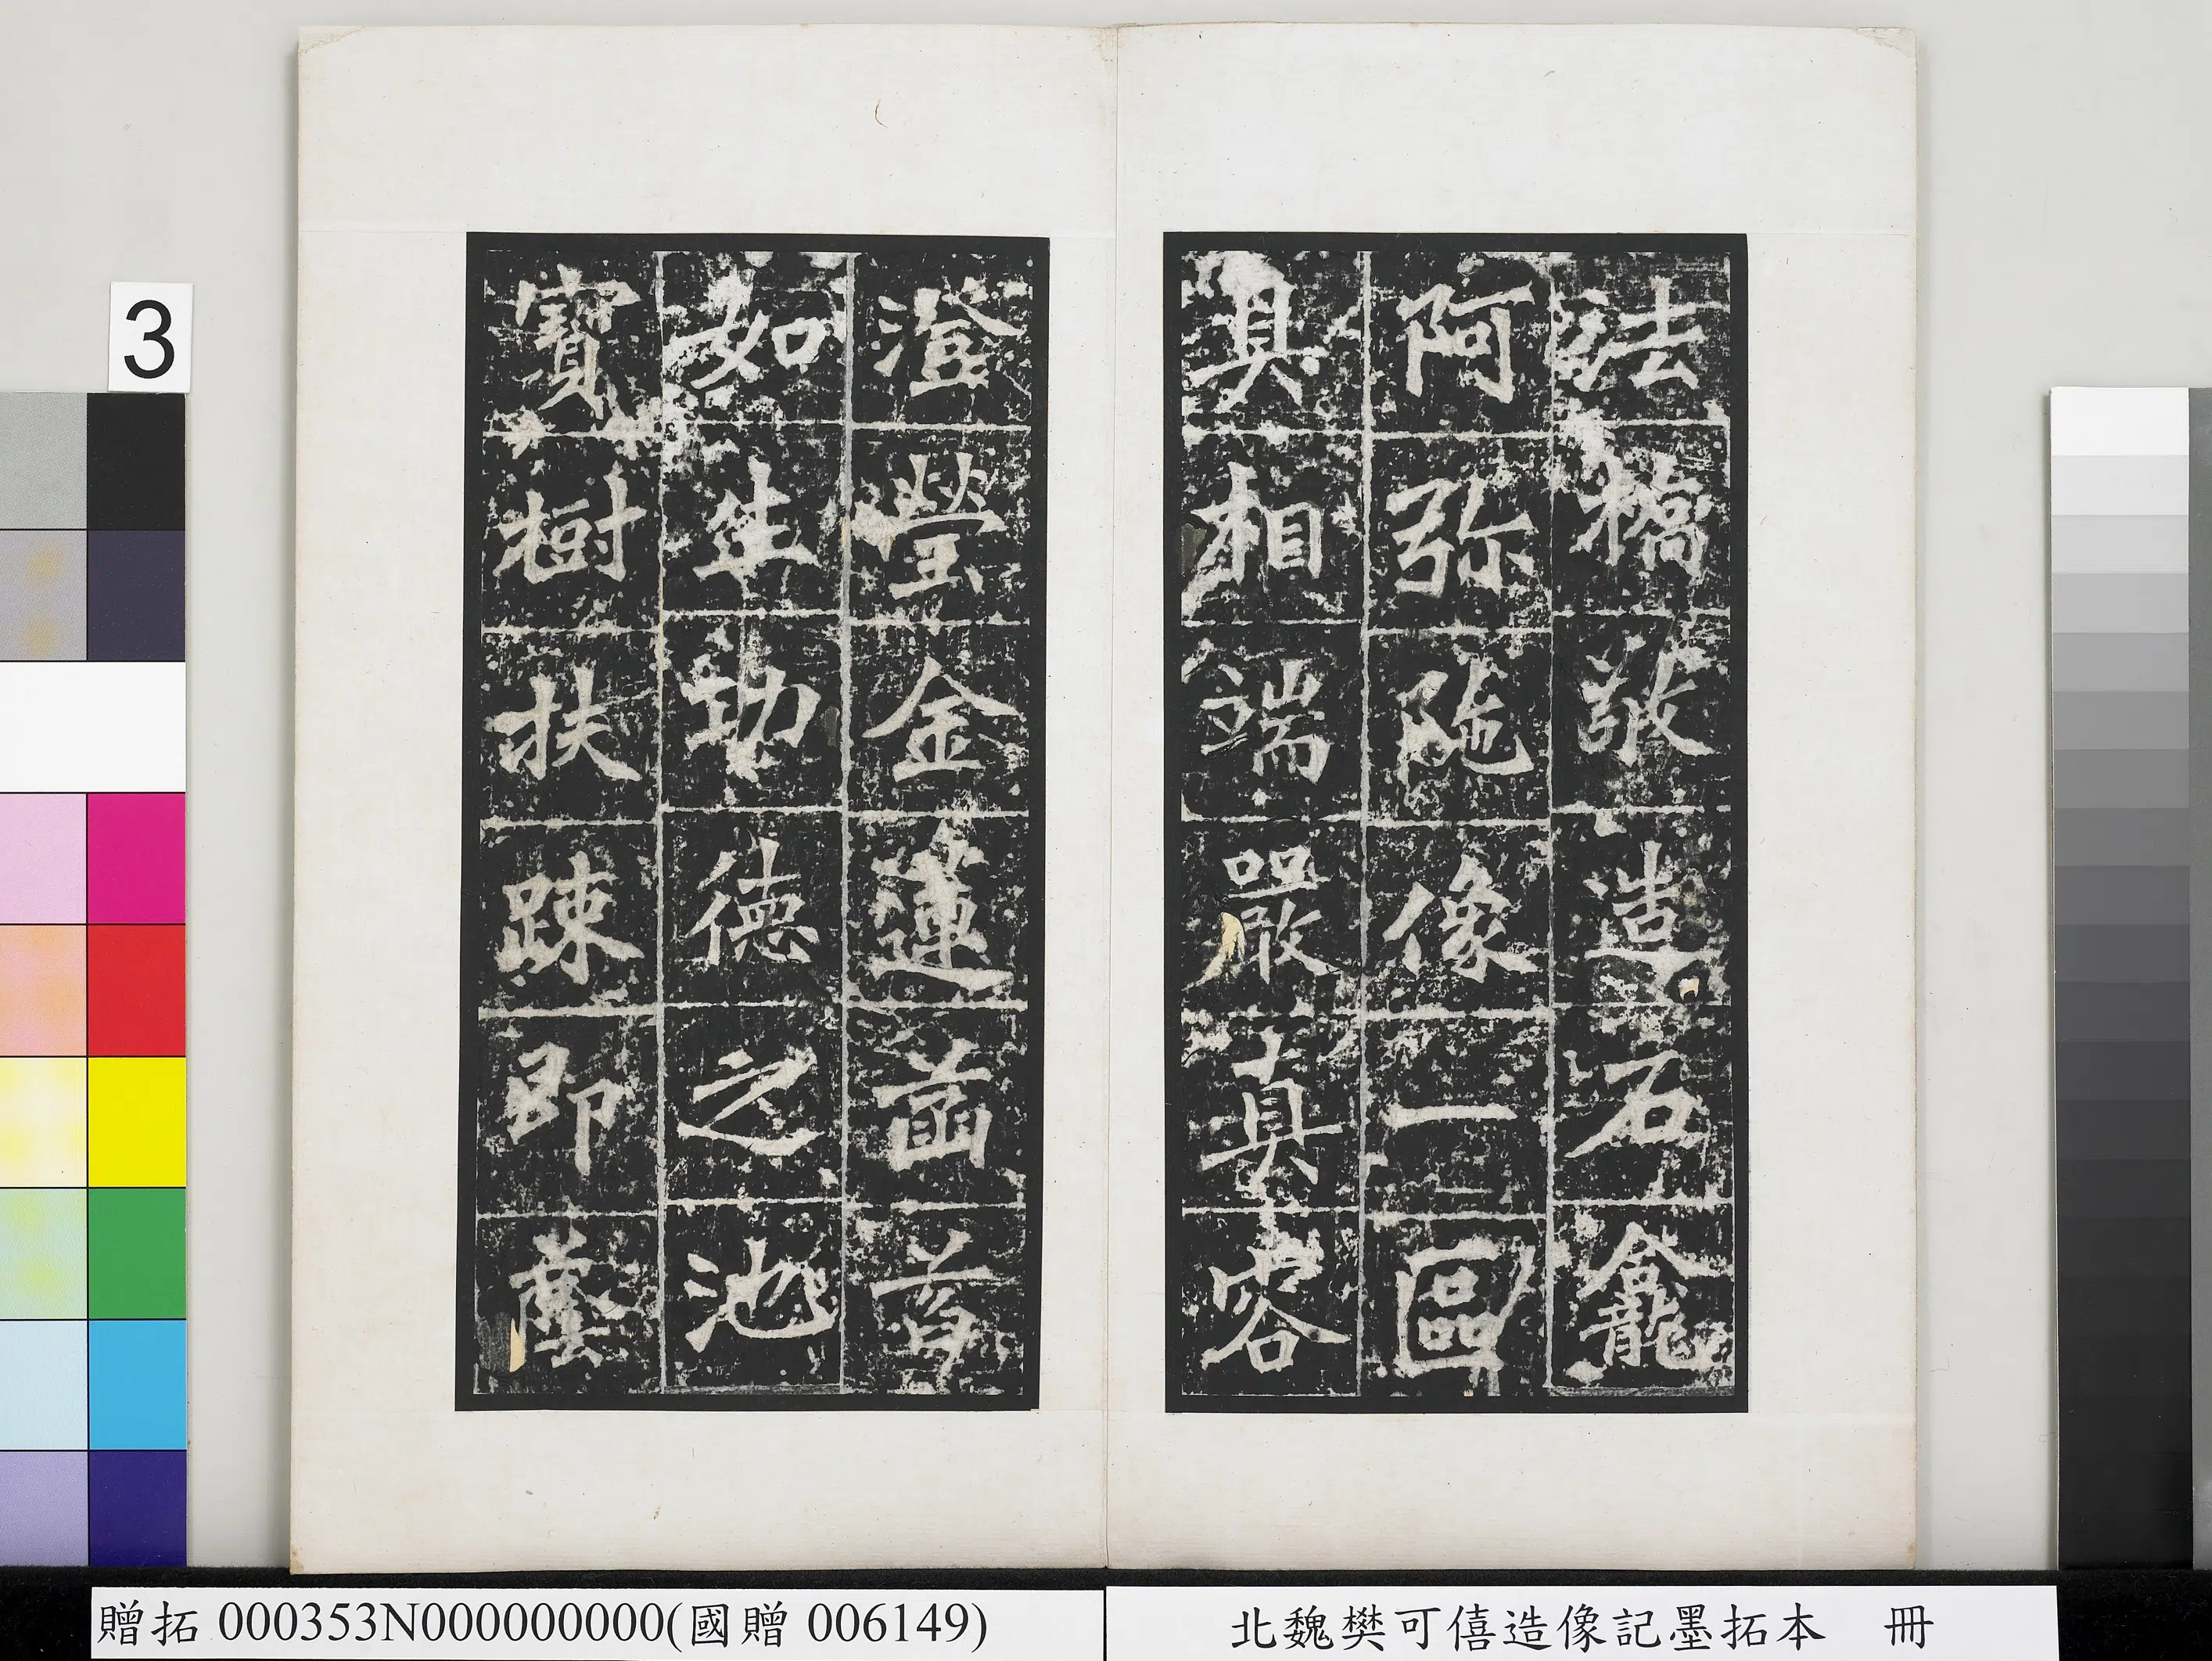 法橋敬造石龕
阿弥陁像一區
具相端嚴真容
澄瑩金蓮菡萏
如生功德之池
寶樹扶踈即
3
贈拓 000353N000000000(國贈 006149)
北魏樊可僖造像記墨拓本 冊